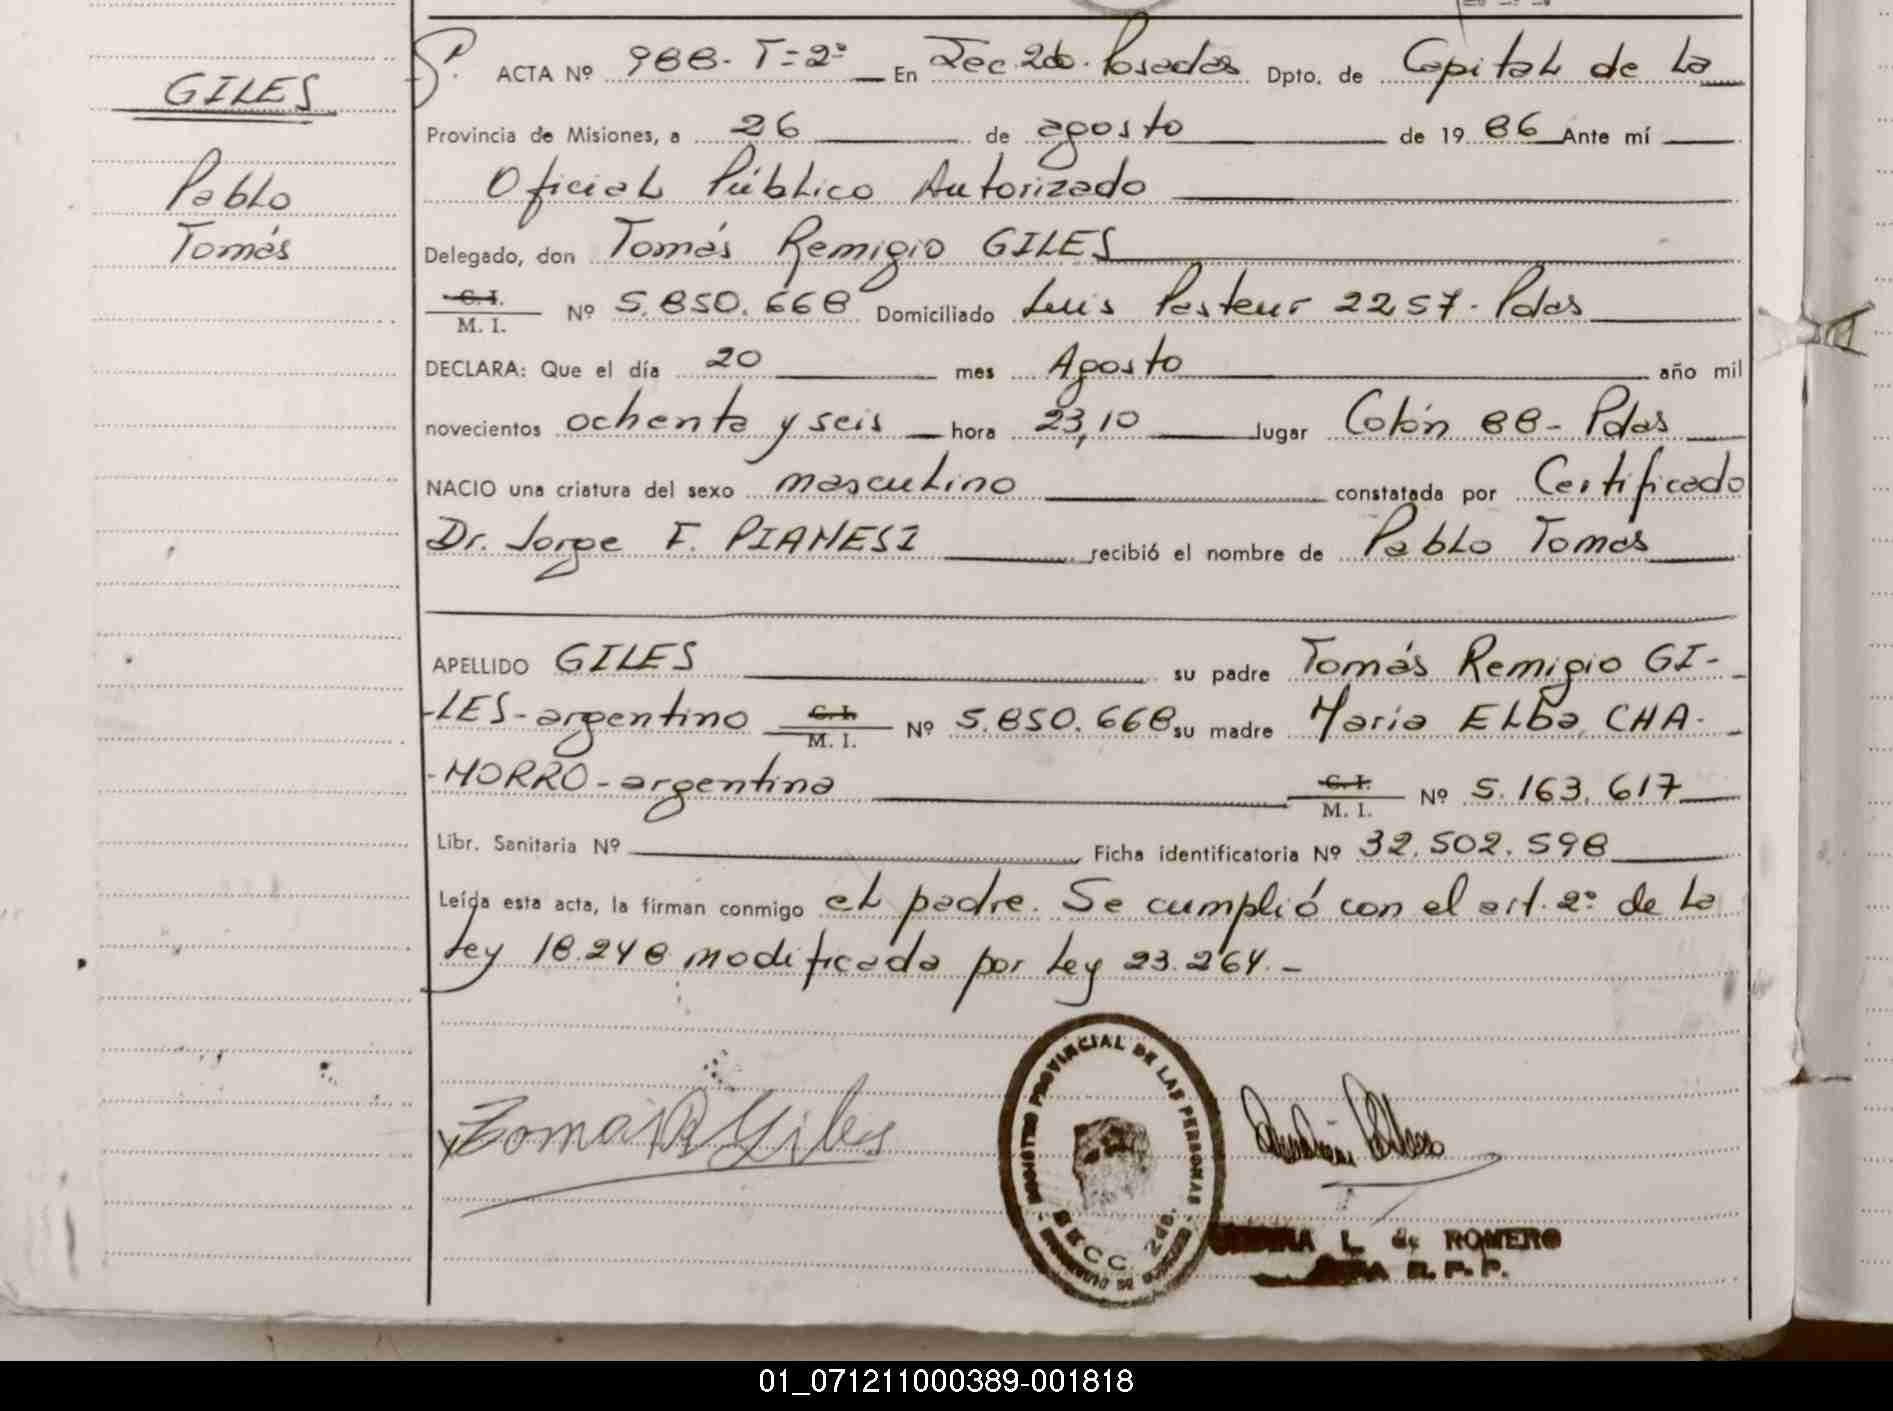 GILES
Pablo
Tomás
ACTA Nº 988- T=2º En Sec. 2da. Posadas Dpto. de Capital de la
Provincia de Misiones, a 26 de agosto de 1986 Ante mí
Oficial Público Autorizado
Delegado, don Tomás Remigio GILES
C. I.
M. I. Nº 5.850.668 Domiciliado Luis Pasteur 2257- Pdas
DECLARA: Que el día 20 mes Agosto año mil
novecientos ochenta y seis hora 23,10 lugar Colón 88- Pdas
NACIO una criatura del sexo masculino constatada por Certificado
Dr. Jorge F. PIANESI recibió el nombre de Pablo Tomás
APELLIDO GILES su padre Tomás Remigio GI-
-LES- argentino C. I. M. I. Nº 5.850.668 su madre María Elba CHA-
-MORRO- argentina C. I. M. I. Nº 5.163.617
Libr. Sanitaria Nº Ficha identificatoria Nº 32.502.598
Leída esta acta, la firman conmigo el padre. Se cumplió con el art. 2º de la
Ley 18.248 modificada por Ley 23.264.-
Tomás R Giles
REGISTRO PROVINCIAL DE LAS PERSONAS
SECC 2da.
L. de ROMERO
R. P. P.
01_071211000389-001818